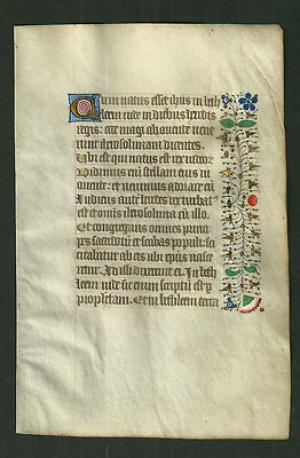 Cum natus esset ihus in beth
leem iude in diebus herodis
regis: ecce magi ab oriente uene
runt iherosolimam dicentes
Ubi est qui natus est rex iudeor
Uidimus eni stellam eius in
oriente: et uenimus adorare eū
Audiens autē herodes rex turbat
est et omis iherosolima cū illo.
Et congregans omnes princi
pes sacerdotū et scribas populi: sci
citabatur ab eis ubi xp̄us nasce
retur. At illi dixerunt ei. In beth
leem iude sic enim scriptū est p
prophetam. Et tu bethleem terra